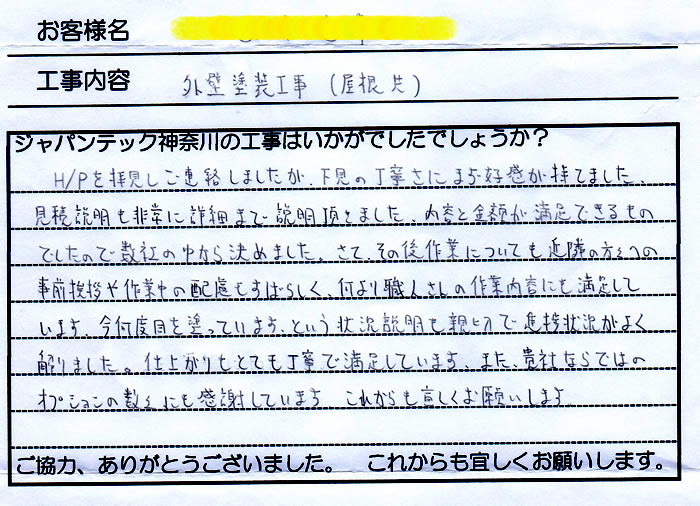 お客様名
工事内容 外壁塗装工事（屋根共）
ジャパンテック神奈川の工事はいかがでしたでしょうか？
H/Pを拝見しご連絡しましたが、下見の丁寧さにまず好感が持てました。
見積説明も非常に詳細まで説明頂きました。内容と金額が満足できるもの
でしたので数社の中から決めました。さて、その後作業についても近隣の方々への
事前挨拶や作業中の配慮もすばらしく、何より職人さんの作業内容にも満足して
います。今何度目を塗っています、という状況説明も親切で進捗状況がよく
解りました。仕上がりもとても丁寧で満足しています。また、貴社ならではの
オプションの数々にも感謝しています これからも宜しくお願いします
ご協力、ありがとうございました。 これからも宜しくお願いします。